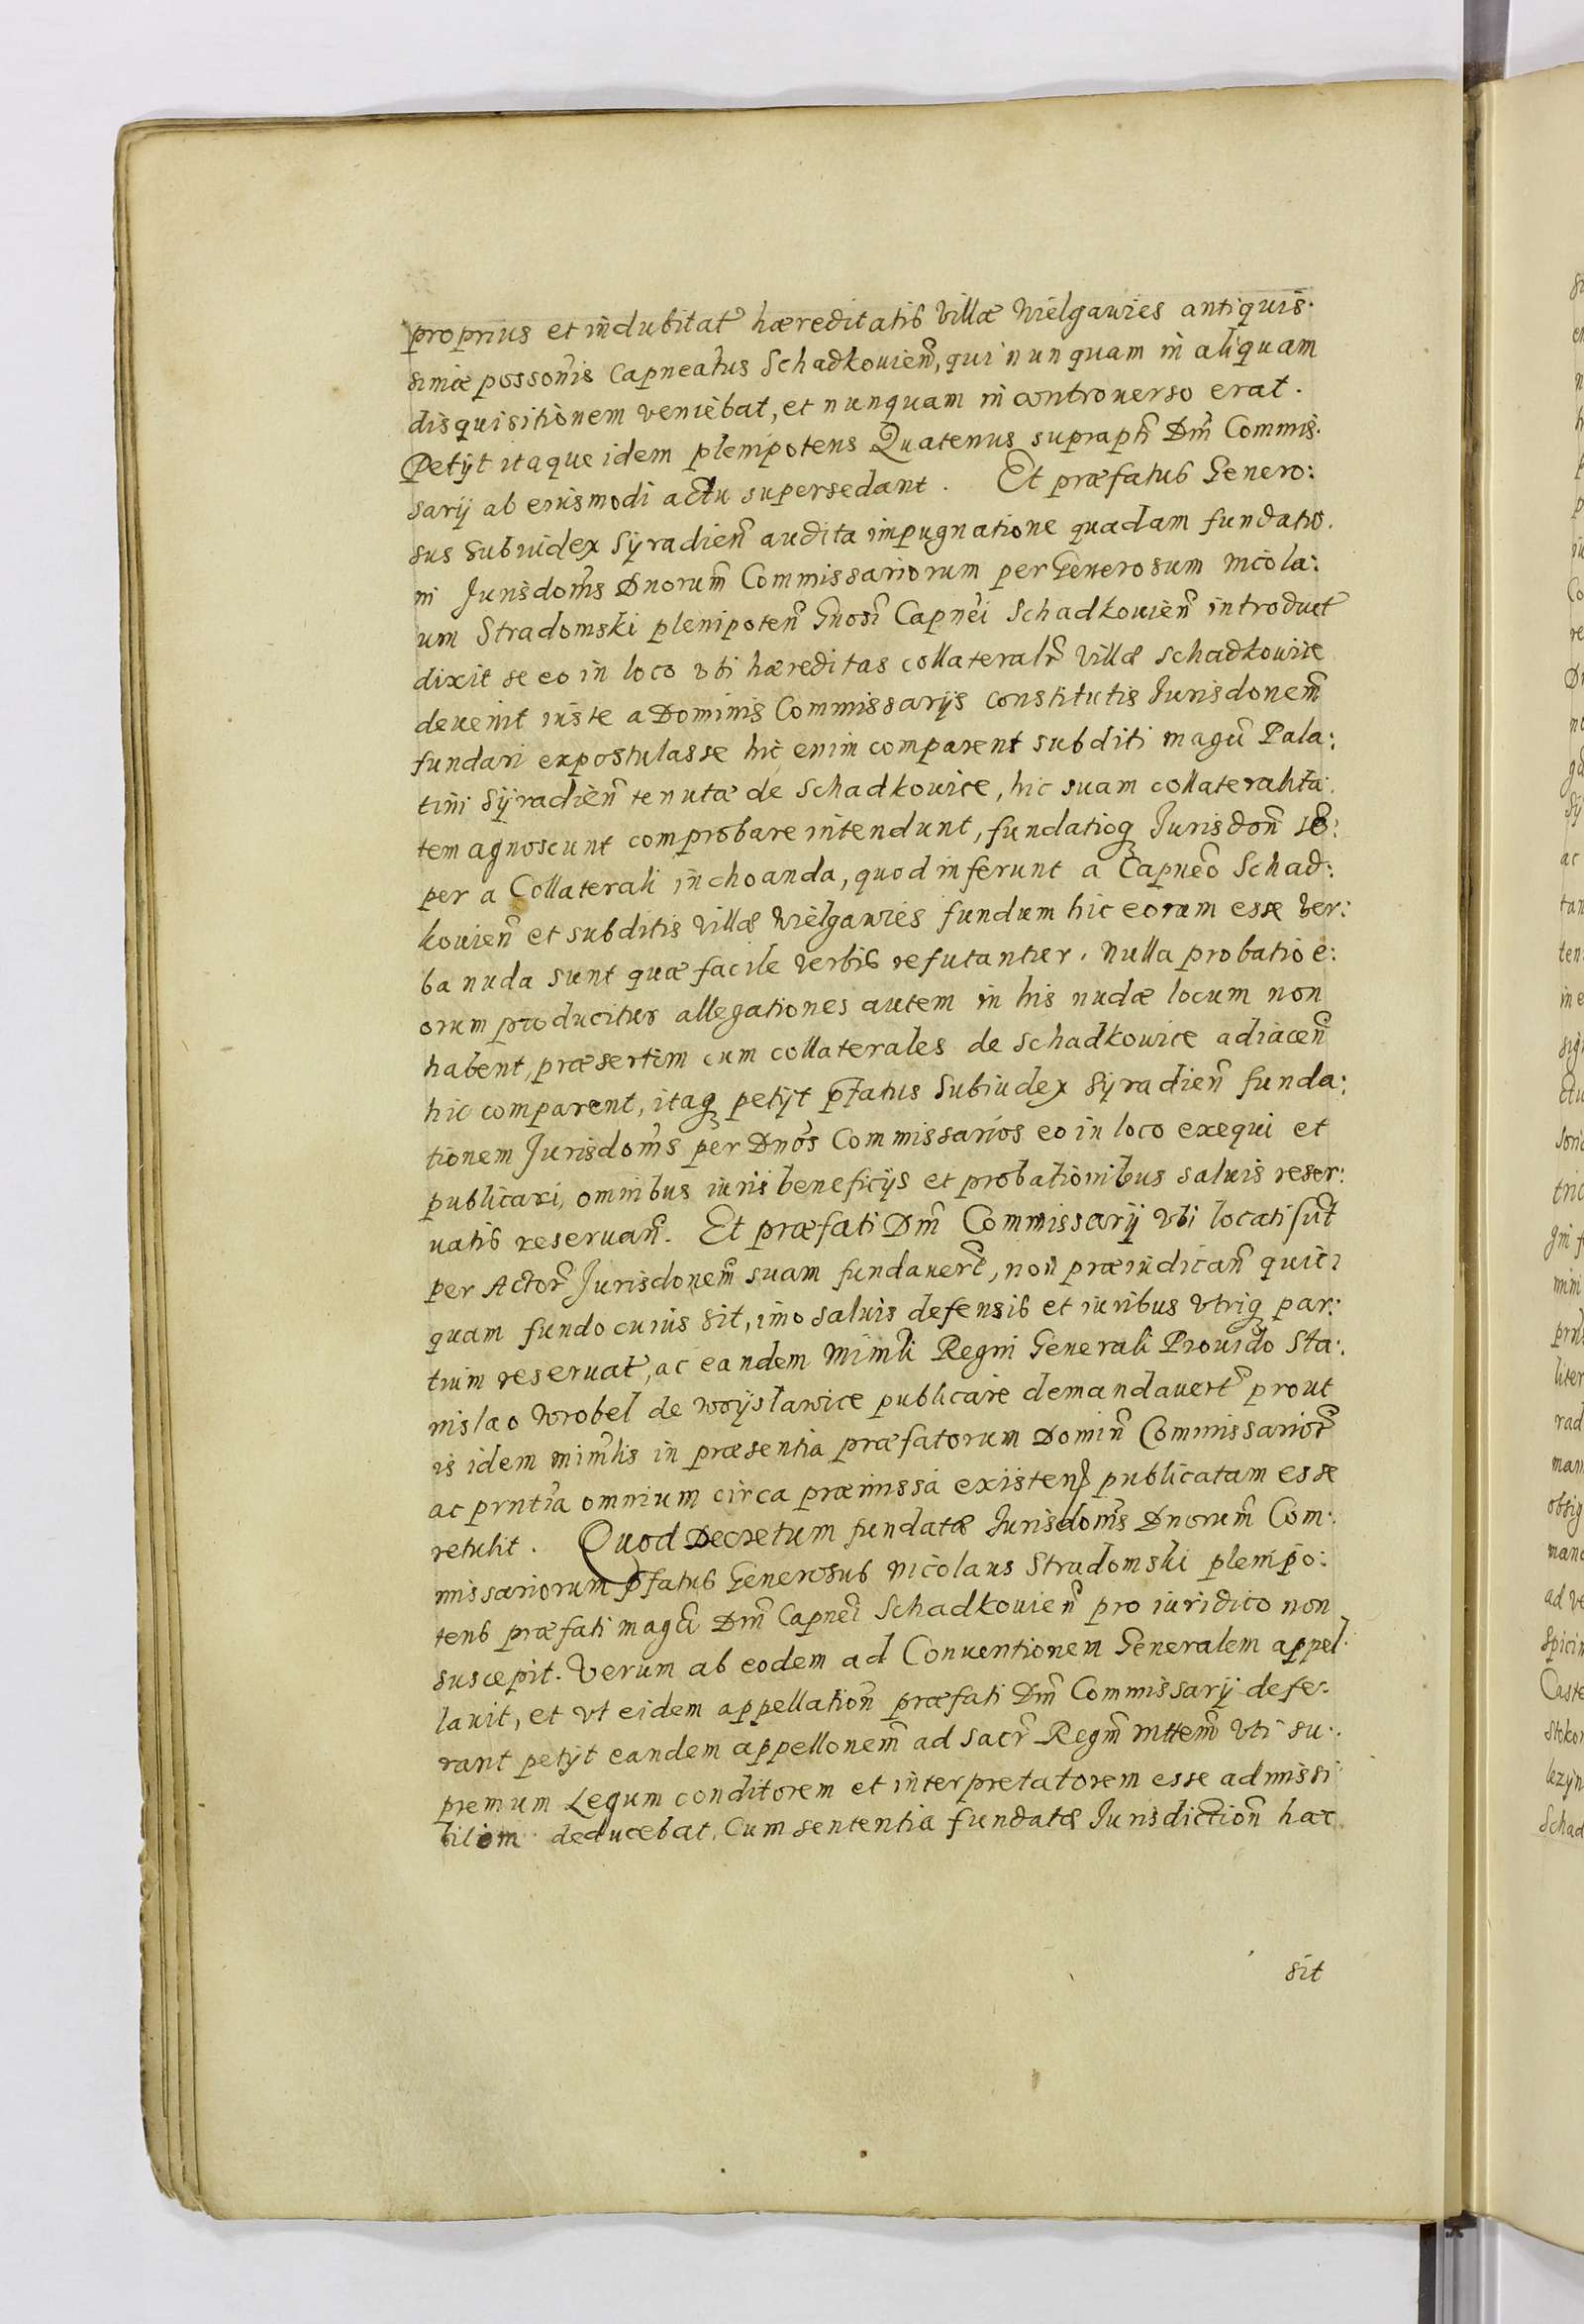 proprius et indubitat hæreditatis villæ Wielgawies antiquis:
simæ posson̄is Capneatus Schadkouien̄, qui nunquam in aliquam
disquisitionem veniebat, et nunquam in controuerso erat.
Petijt itaque idem plenipotens Quatenus suprapti Dni Commis:
sarij ab eiusmodi actu supersedant. Et præfatus Genero:
sus Subiudex Syradien̄ audita impugnatione quadam fundatio:
ni Jurisdon̄is Dnorum Commissariorum per Generosum Nicola:
um Stradomski plenipoten̄ Gnosi Capnei Schadkouien̄ introduct
dixit se eo in loco vti hæreditas collateral villæ Schadkowice
deuenit iuste a Dominis Commissarijs constitutis Jurisdonem
fundari expostulasse hic enim comparent subditi magci Pala:
tini Syradien̄ tenutæ de Schadkowice, hic suam collateralita:
tem agnoscunt comprobare intendunt, fundatioq Jurisdon̄ se:
per a Collaterali inchoanda, quod inferunt a Capneo Schad:
kouien̄ et subditis villæ Wielgawies fundum hic eorum esse ver:
ba nuda sunt quæ facile verbis refutantur. Nulla probatio e:
orum producitur allegationes autem in his nudæ locum non
habent, præsertim cum collaterales de Schadkowice adiacen̄
hic comparent, itaq petijt pfatus Subiudex Syradien̄ funda:
tionem Jurisdon̄is per Dnos Commissarios eo in loco exequi et
publicari, omnibus iuris beneficijs et probationibus saluis reser:
uatis reseruan̄. Et præfati Dni Commissarij vbi locati sūt
per Actor Jurisdonem suam fundauert, non præiudican̄ quic:
quam fundo cuius sit, imo saluis defensis et iuribus vtriq par:
tium reseruat, ac eandem Minli Regni Generali Prouido Sta:
nislao Wrobel de Woyslawice publicare demandauert prout
is idem minlis in præsentia præfatorum Domin̄ Commissarior
ac prntia omnium circa præmissa existen publicatam esse
retulit. Quod Decretum fundatæ Jurisdon̄is Dnorum Com:
missariorum pfatus Generosus Nicolaus Stradomski plenipo:
tens præfati magci Dni Capnei Schadkouien̄ pro iuridico non
suscepit. Verum ab eodem ad Conuentionem Generalem appel:
lauit, et vt eidem appellation̄ præfati Dni Commissarij defe:
rant petijt eandem appellonem ad Sacr Regm Mttem vti su:
premum Legum conditorem et interpretatorem esse admissi
bilem deducebat. Cum sententia fundatæ Jurisdiction̄ hac
sit